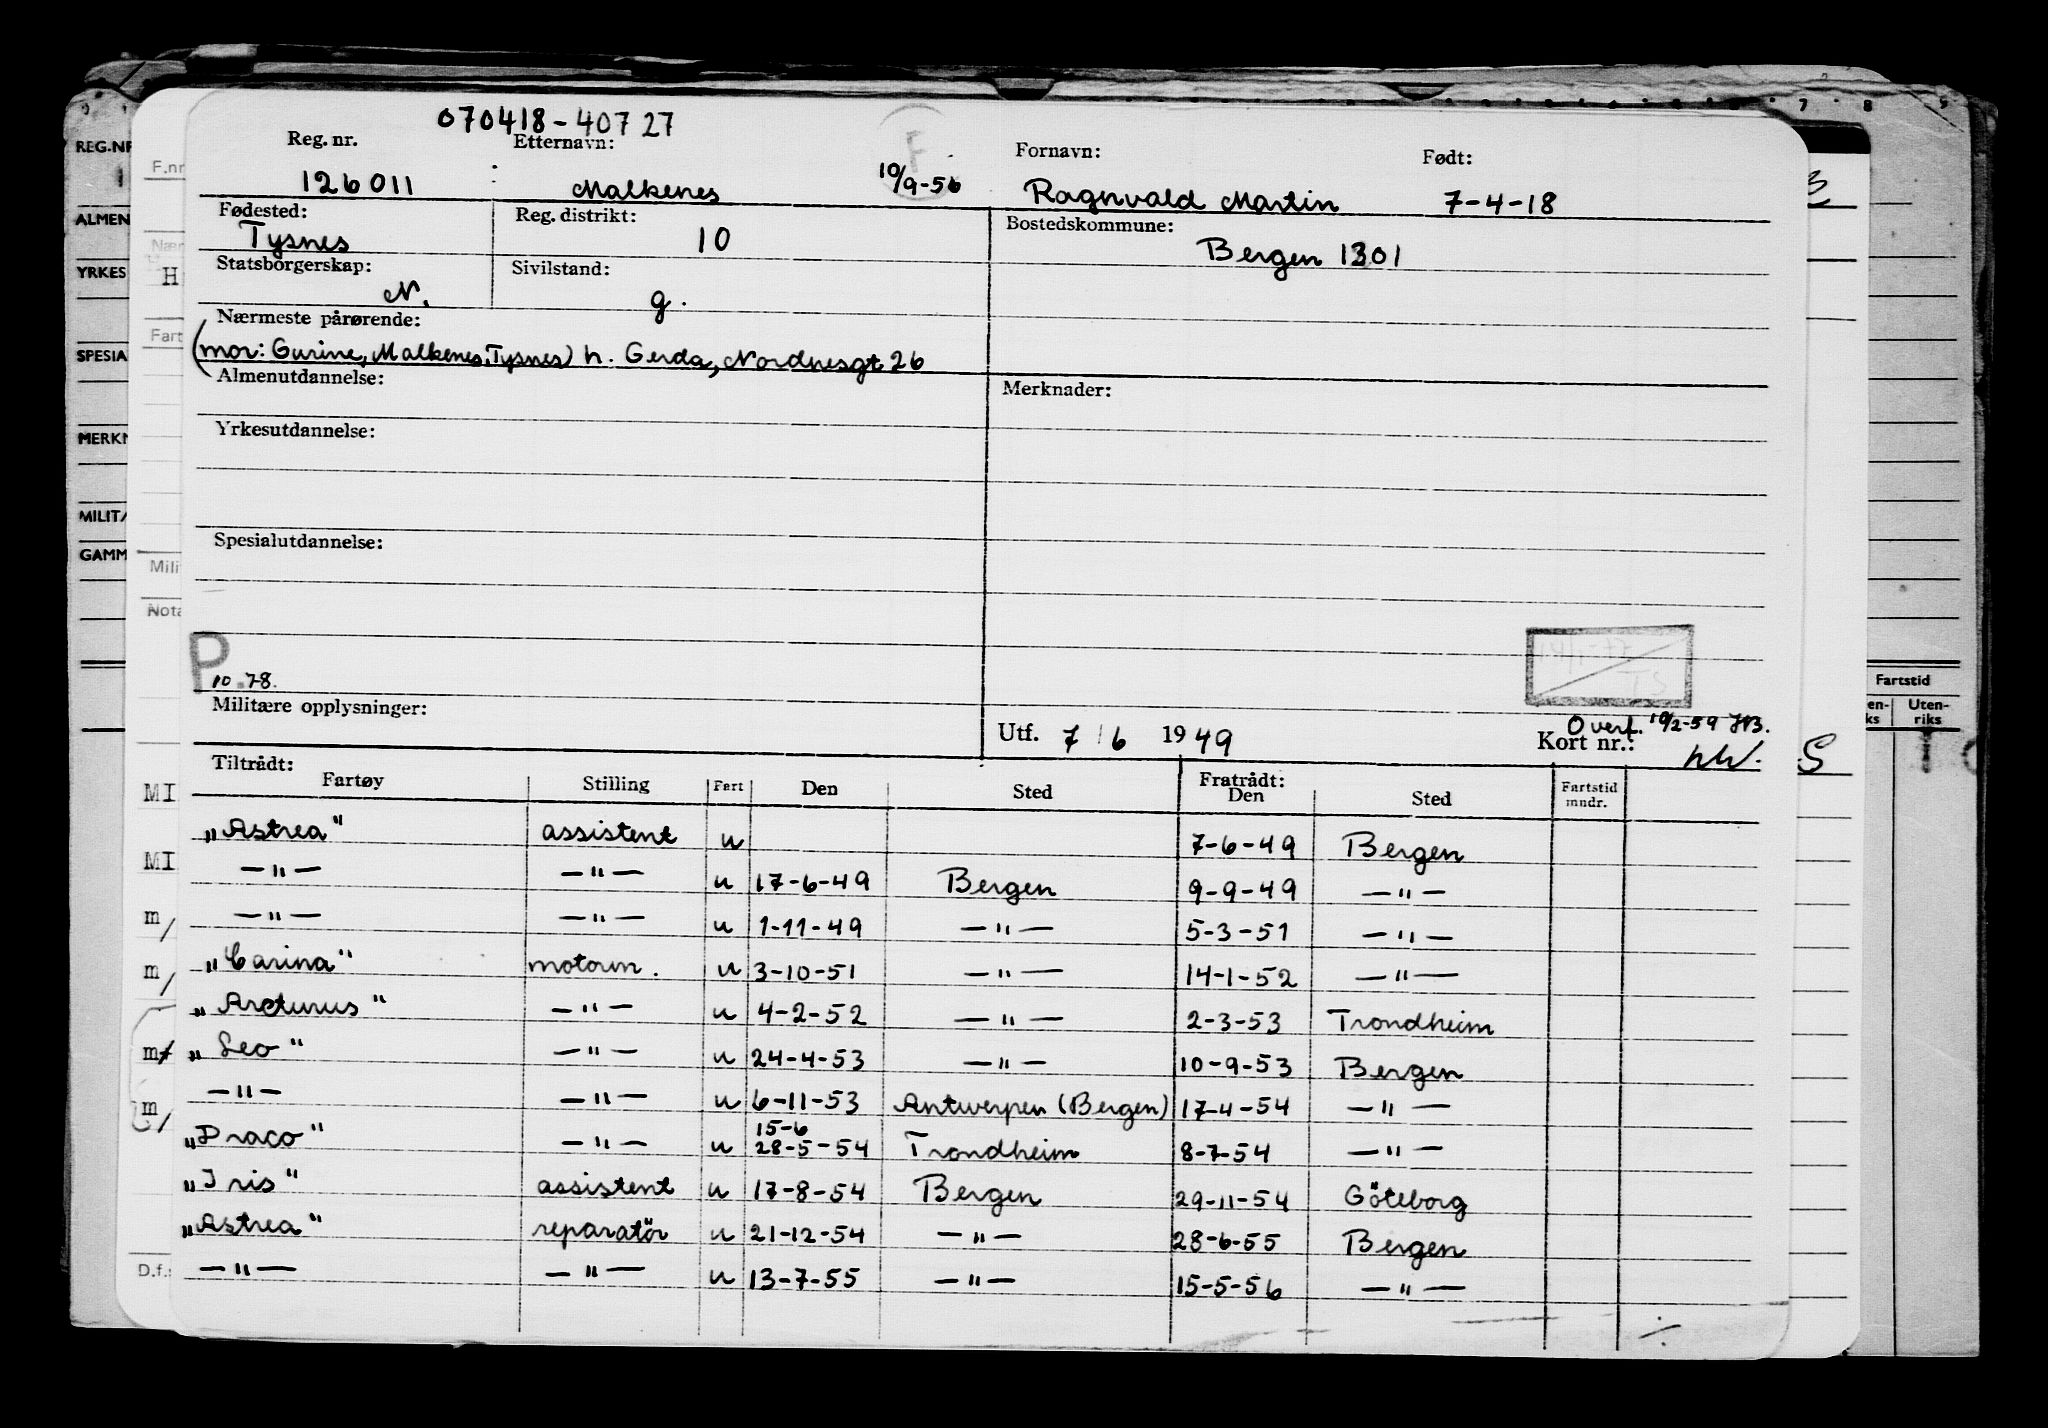 070418-40727
Reg. nr. Etternavn: Fornavn: Født:
126011 Malkenes 10/9-56 F Ragnvald Martin 7-4-18
Fødested: Reg. distrikt: Bostedskommune:
Tysnes 10 Bergen 1301
Statsborgerskap: Sivilstand:
N. g.
Nærmeste pårørende:
(mor: Gurine, Malkenes, Tysnes) h. Gerda, Nordnesgt 26
Almenutdannelse: Merknader:
Yrkesutdannelse:
Spesialutdannelse:
P
10.78.
Militære opplysninger: Utf. 7/6 1949 Overf. 10/2-59
Kort nr.:
Tiltrådt: Fratrådt:
Fartøy Stilling Fart Den Sted Den Sted Fartstid mndr.
„Astrea" assistent u 7-6-49 Bergen
—"— —"— u 17-6-49 Bergen 9-9-49 —"—
—"— —"— u 1-11-49 —"— 5-3-51 —"—
„Carina" motorm. u 3-10-51 —"— 14-1-52 —"—
„Arcturus" —"— u 4-2-52 —"— 2-3-53 Trondheim
„Leo" —"— u 24-4-53 —"— 10-9-53 Bergen
—"— —"— u 6-11-53 Antwerpen (Bergen) 17-4-54 —"—
15-6
„Draco" —"— u 28-5-54 Trondheim 8-7-54 —"—
„Iris" assistent u 17-8-54 Bergen 29-11-54 Göteborg
„Astrea" reparatör u 21-12-54 —"— 28-6-55 Bergen
—"— —"— u 13-7-55 —"— 15-5-56 —"—
REG.NR
ALMEN
YRKES
SPESIA
MERKN
MILITÆ
GAMM
F.nr
Nær
H
Fart
Mili
Nota
MI
MI
m/
m/
m/
m/
D.f.:
7 8 9
Fartstid
Uten-
riks
S